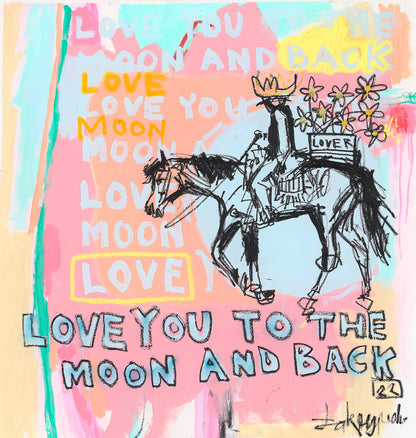 LOVE YOU TO THE
MOON AND BACK
LOVE
LOVE YOU
MOON
MOON
LOVE
MOON
LOVE
LOVER
LOVE YOU TO THE
MOON AND BACK
22